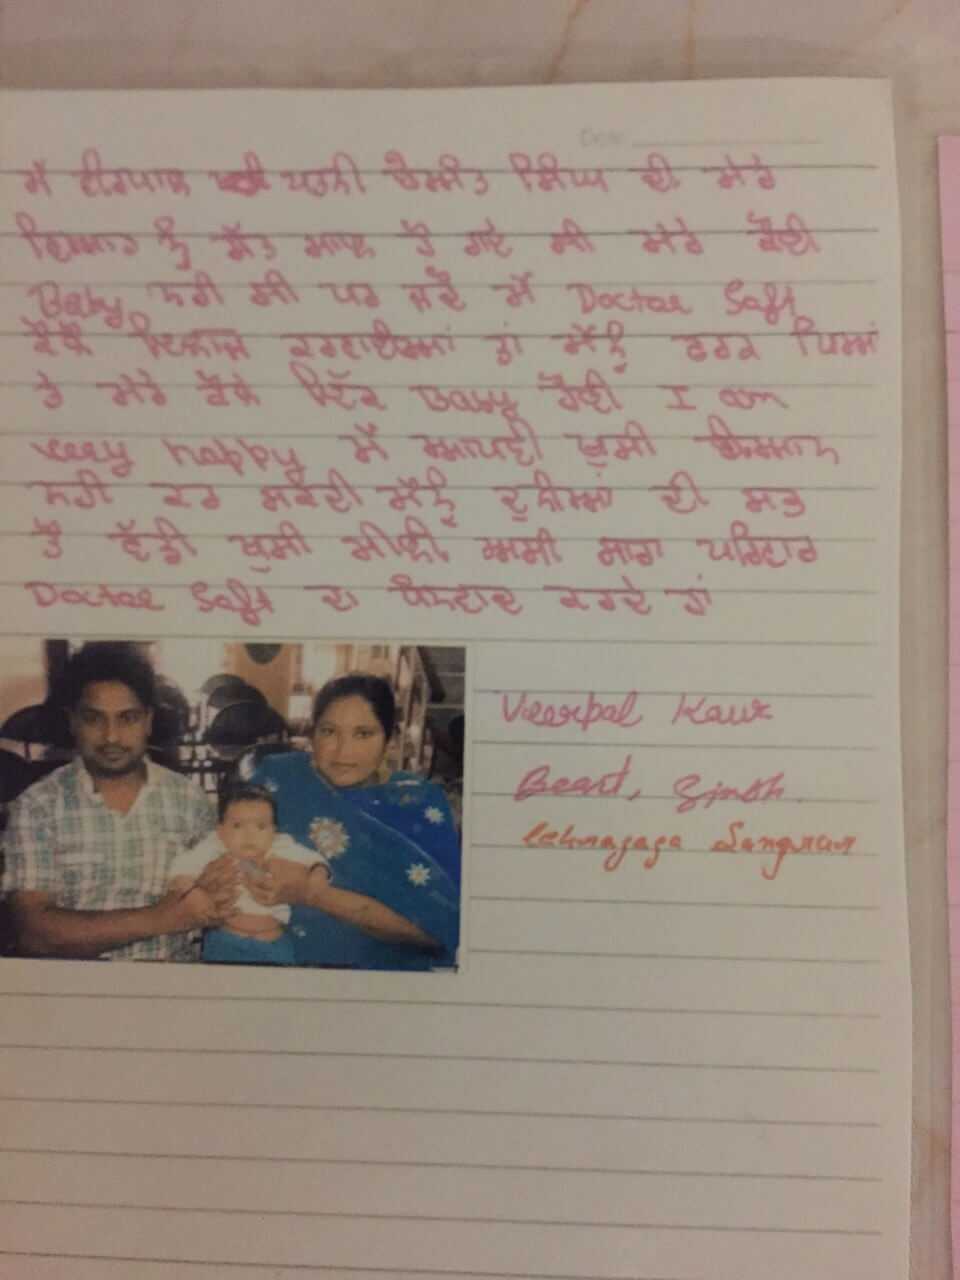 Date
ਮੈਂ ਵੀਰਪਾਲ ਪਤਨੀ ਸਿੰਘ ਦੀ ਮੇਰੇ
ਵਿਆਹ ਨੂੰ ਸੱਤ ਸਾਲ ਹੋ ਗਏ ਸੀ ਮੇਰੇ ਕੋਈ
Baby ਨਹੀ ਸੀ ਪਰ ਜਦੋਂ ਮੈਂ Doctor
ਕੋਲੋਂ ਇਲਾਜ ਕਰਵਾਇਆ ਤਾਂ ਮੈਨੂੰ ਫਰਕ ਪਿਆ
ਤੇ ਮੇਰੇ ਕੋਲੇ ਇੱਕ Baby ਹੋਈ I am
very happy ਮੈਂ ਆਪਣੀ ਖੁਸੀ ਬਿਆਨ
ਨਹੀ ਕਰ ਸਕਦੀ ਮੈਨੂੰ ਦੁਨੀਆਂ ਦੀ ਸਭ
ਤੋਂ ਵੱਡੀ ਖੁਸੀ ਮਿਲੀ ਅਸੀ ਸਾਰਾ ਪਰਿਵਾਰ
Doctor ਦਾ ਧੰਨਵਾਦ ਕਰਦੇ ਹਾਂ
Veerpal Kaur
Beant, Singh
Lehragaga Sangrur